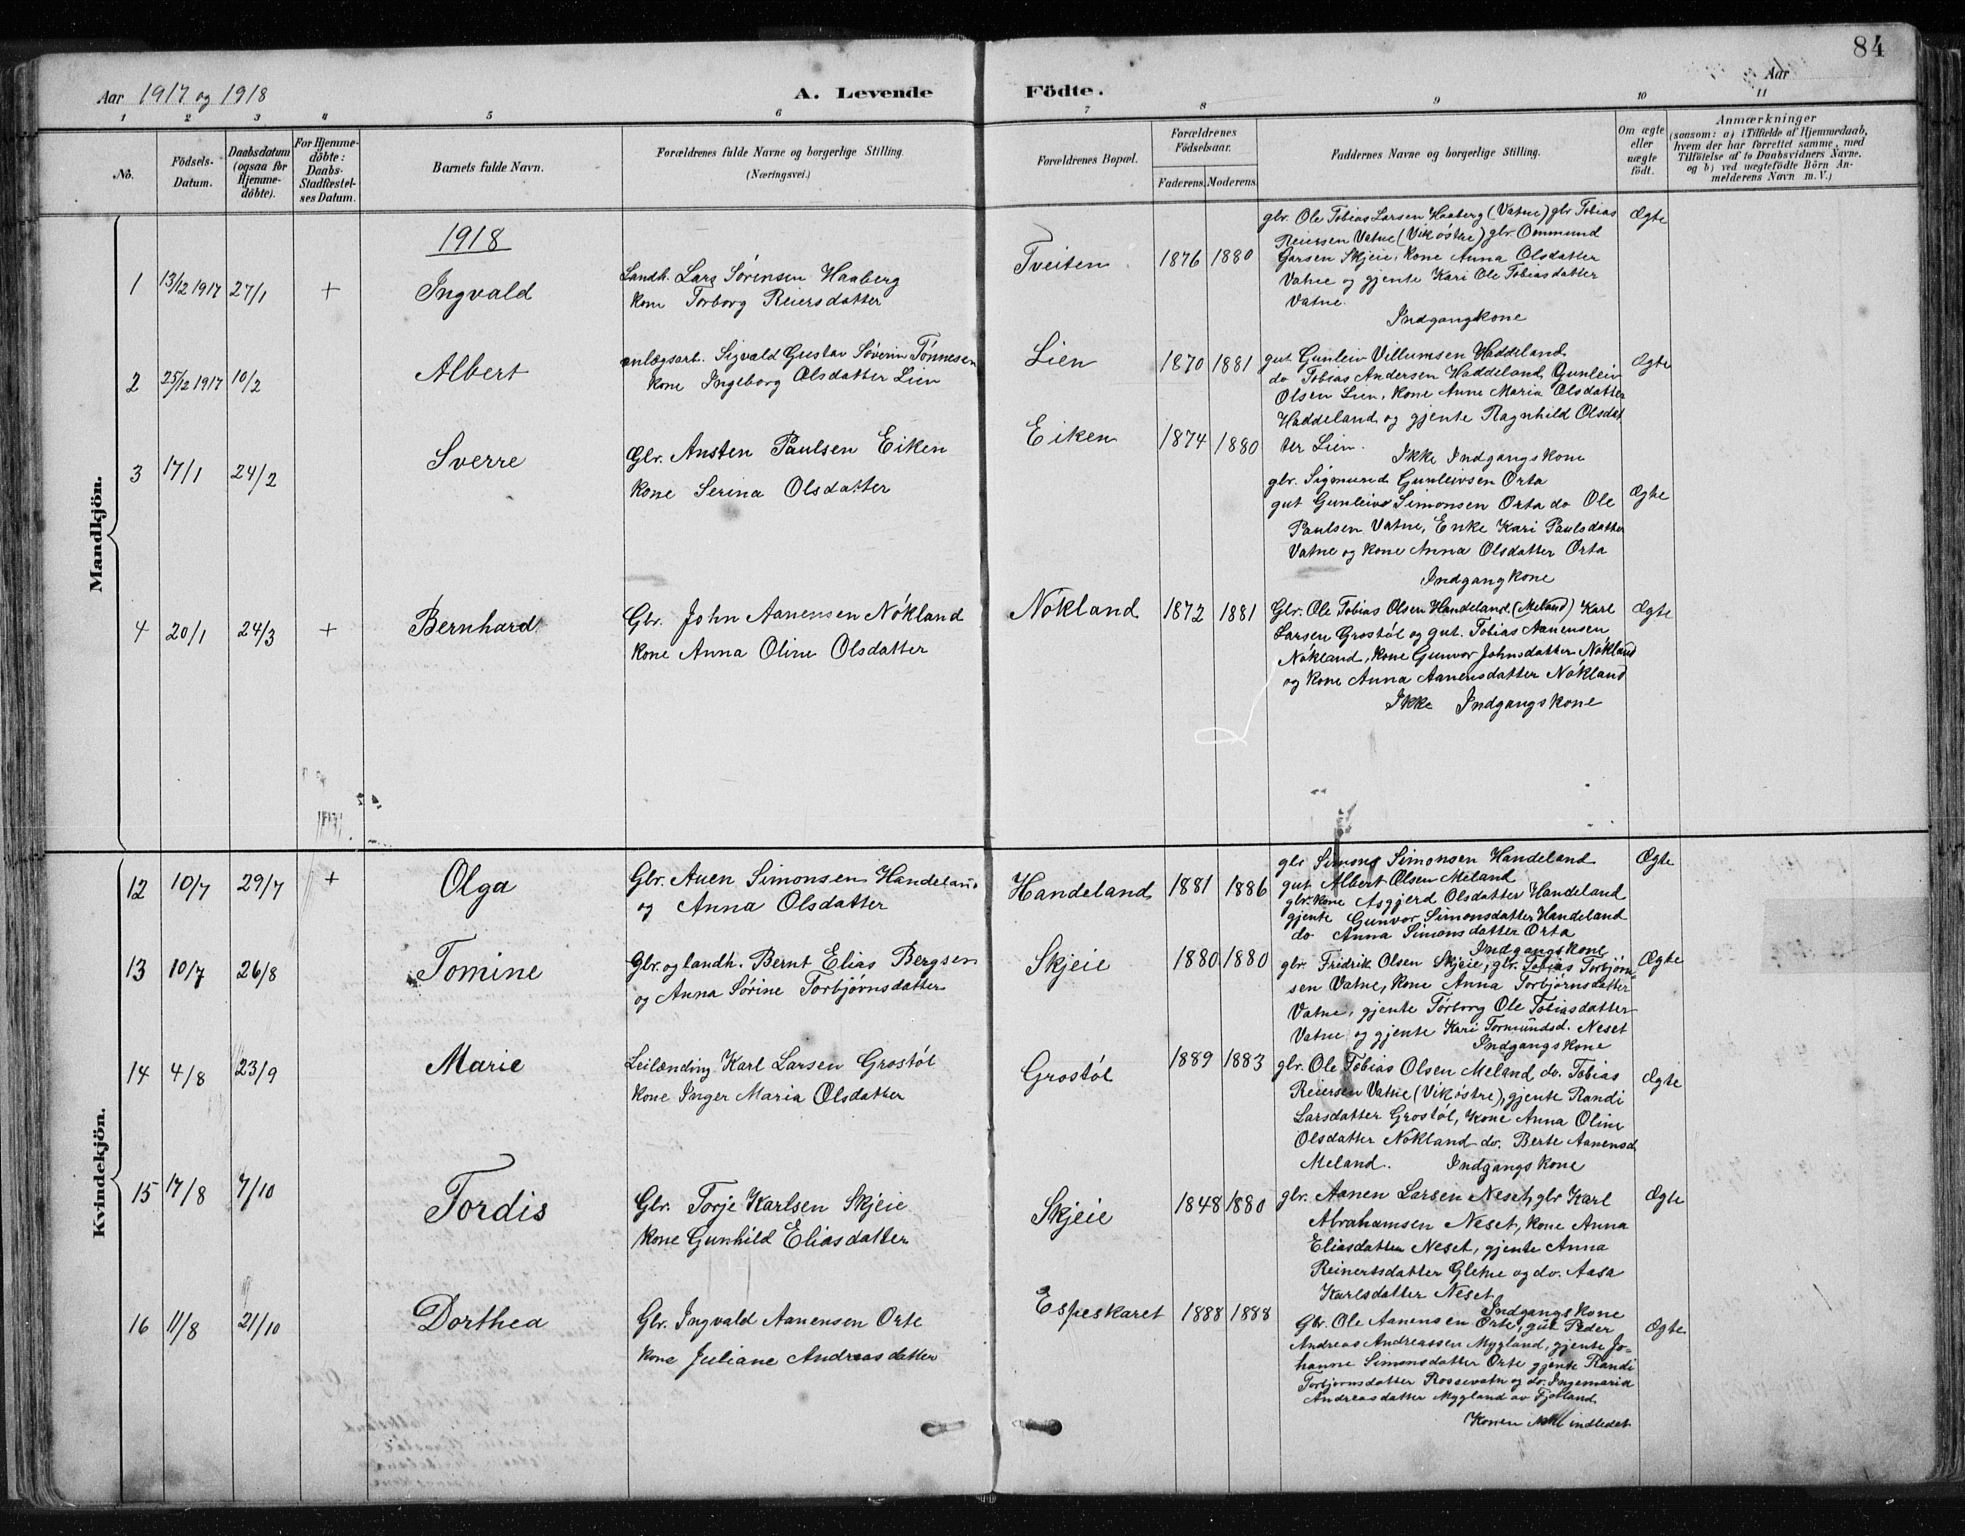 84
Aar 1917 og 1918
A. Levende Födte.
Aar
1 2 3 4 5 6 7 8 9 10 11
No.
Födsels-Datum.
Daabsdatum (ogsaa for Hjemmedöbte).
For Hjemmedöbte: Daabs-Stadfæstelses Datum.
Barnets fulde Navn.
Forældrenes fulde Navne og borgerlige Stilling.
(Næringsvei.)
Forældrenes Bopæl.
Forældrenes Födselsaar.
Faderens. Moderens.
Faddernes Navne og borgerlige Stilling.
Om ægte eller uægte födt.
Anmærkninger
(saasom: a) i Tilfælde af Hjemmedaab, hvem der har forrettet samme, med Tilföielse af to Daabsvidners Navne, og b) ved uægtefödte Börn Anmelderens Navn m. V.)
Mandkjön.
1918
1 13/12 1917 27/1 + Ingvald
Landh. Lars Sørensen Haaberg
kone Torborg Reiersdatter
Tveiten 1876 1880
gbr. Ole Tobias Larsen Haaberg (Vatne) gbr Tobias
Reiersen Vatne (Vik østre) gbr. Ommund
Garsen Skjeie, kone Anna Olsdatter
Vatne og gjente Kari Ole Tobiasdatter
Vatne.
Indgangkone
Ægte
2 25/12 1917 10/2 Albert
anlægsarb. Sigvald Gustav Søverin Tønnesen
kone Ingeborg Olsdatter Lien
Lien 1870 1881
gut Gunleiv Villumsen Haddeland
do Tobias Andersen Haddeland Gunleiv
Olsen Lien, kone Anne Maria Olsdatter
Haddeland og gjente Ragnhild Olsdat
ter Lien.
Ikke Indgangskone
Ægte
3 17/1 24/2 Sverre
Gbr. Ansten Paulsen Eiken
kone Serina Olsdatter
Eiken 1874 1880
gbr. Sigmund Gunleivsen Orta
gut Gunleiv Simonsen Orta do Ole
Paulsen Vatne, Enke Kari Paulsdatter
Vatne og kone Anna Olsdatter Orta
Indgangkone
Ægte
4 20/1 24/3 + Bernhard
Gbr. John Aanensen Nøkland
kone Anna Oline Olsdatter
Nøkland 1872 1881
Gbr. Ole Tobias Olsen Handeland (Meland) Karl
Larsen Grostøl og gut. Tobias Aanensen
Nøkland, kone Gunvor Johnsdatter Nøkland
og kone Anna Aanensdatter Nøkland
Ikke Indgangskone
Ægte
Kvindekjön.
12 10/7 29/7 + Olga
Gbr. Auen Simonsen Handeland
og Anna Olsdatter
Handeland 1881 1886
gbr Simons Simonsen Handeland
gut Albert Olsen Meland
gbr.kone Asgjerd Olsdatter Handeland
gjente Gunvor Simonsdatter Handeland
do Anna Simonsdatter Orta
Indgangskone
Ægte
13 10/7 26/8 Tomine
Gbr. og landh. Bernt Elias Bergsen
og Anna Sørine Torbjørnsdatter
Skjeie 1880 1880
gbr. Fridrik Olsen Skjeie, gbr. Tobias Torbjørn-
sen Vatne, kone Anna Torbjørnsdatter
Vatne, gjente Torborg Ole Tobiasdatter
Vatne og gjente Kari Tormundsd. Neset
Indgangskone
Ægte
14 4/8 23/9 Marie
Leilænding Karl Larsen Grostøl
kone Inger Maria Olsdatter
Grostøl 1889 1883
gbr. Ole Tobias Olsen Meland do. Tobias
Reiersen Vatne (Vik østre), gjente Randi
Larsdatter Grostøl, kone Anna Oline
Olsdatter Nøkland do. Berte Aanensd
Meland. Indgangskone
Ægte
15 17/8 7/10 Tordis
Gbr. Torje Karlsen Skjeie
kone Gunhild Eliasdatter
Skjeie 1848 1880
gbr. Aanen Larsen Neset, gbr Karl
Abrahamsen Neset, kone Anna
Eliasdatter Neset, gjente Anna
Reinertsdatter og do. Aasa
Karlsdatter Neset
Indgangskone
Ægte
16 11/8 21/10 Dorthea
Gbr. Ingvald Aanensen Orte
kone Juliane Andreasdatter
Espeskaret 1888 1888
Gbr. Ole Aanensen Orte, gut Peder
Andreas Andreassen Mygland, gjente Jo-
hanne Simonsdatter Orte gjente Randi
Torbjørnsdatter Rossevatn og do. Ingemaria
Andreasdatter Mygland av Fjotland
Konen indledet
Ægte